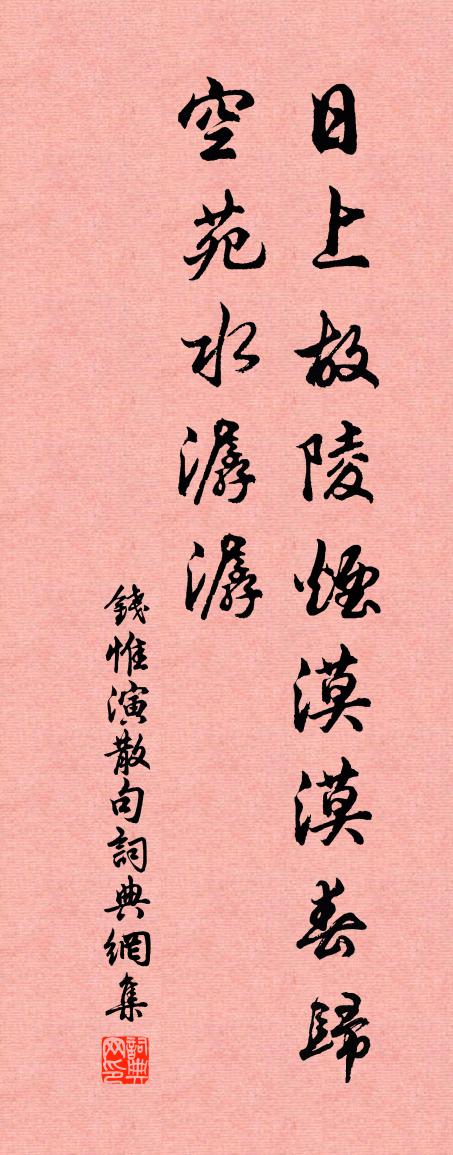 日上故陵煙漠漠春歸
空苑水潺潺
錢惟演散句詞典網集
詞典网印